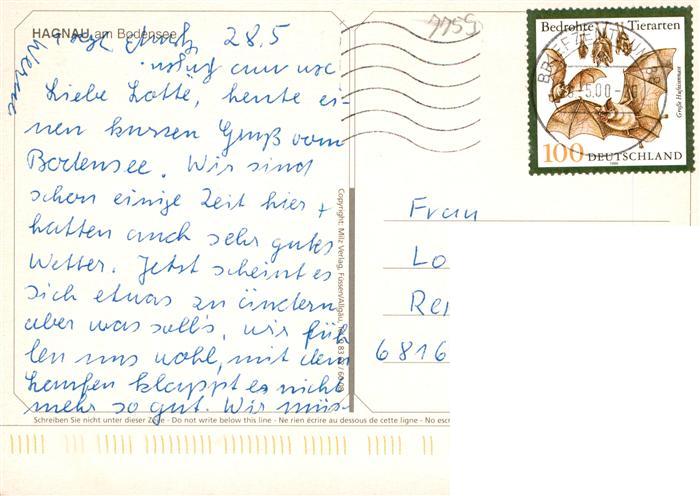 HAGNAU am Bodensee
28.5
Liebe Lotte, heute ei-
nen kurzen Gruß vom
Bodensee. Wir sind
schon einige Zeit hier +
hatten auch sehr gutes
Wetter. Jetzt scheint es
sich etwas zu ändern
aber was soll's, wir füh-
len uns wohl, mit dem
laufen klappt es nicht
mehr so gut. Wir müs-
Schreiben Sie nicht unter dieser Zeile - Do not write below this line - Ne rien écrire au dessous de cette ligne - No esc
Copyright: Milz Verlag, Füssen/Allgäu,
7759
Bedrohte Tierarten
BRIEFZENTRUM
5.00
Große Hufeisennase
100 DEUTSCHLAND
Frau
Lo
Re
6816